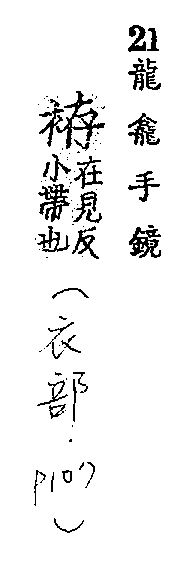 21龍龕手鏡
袸在見反
小帶也
(衣部·P107)